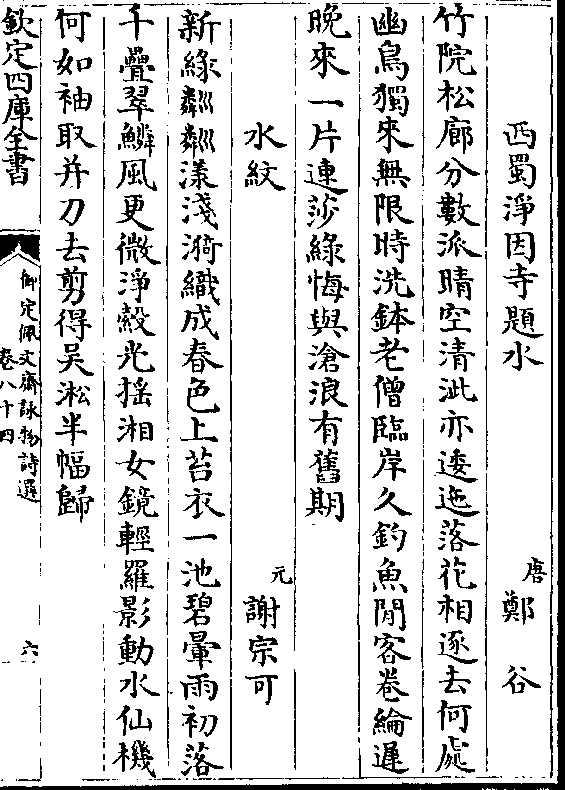 西蜀淨因寺題水 唐 鄭谷
竹院松廊分數派晴空清泚亦逶迤落花相逐去何處
幽鳥獨來無限時洗鉢老僧臨岸久釣魚閒客卷綸遲
晚來一片連莎綠悔與滄浪有舊期
水紋 元 謝宗可
新綠粼粼漾淺漪織成春色上苔衣一池碧暈雨初落
千疊翠鱗風更微淨縠光揺湘女鏡輕羅影動水仙機
何如袖取并刀去剪得吳淞半幅歸
欽定四庫全書 御定佩文齋詠物詩選 卷八十四 六